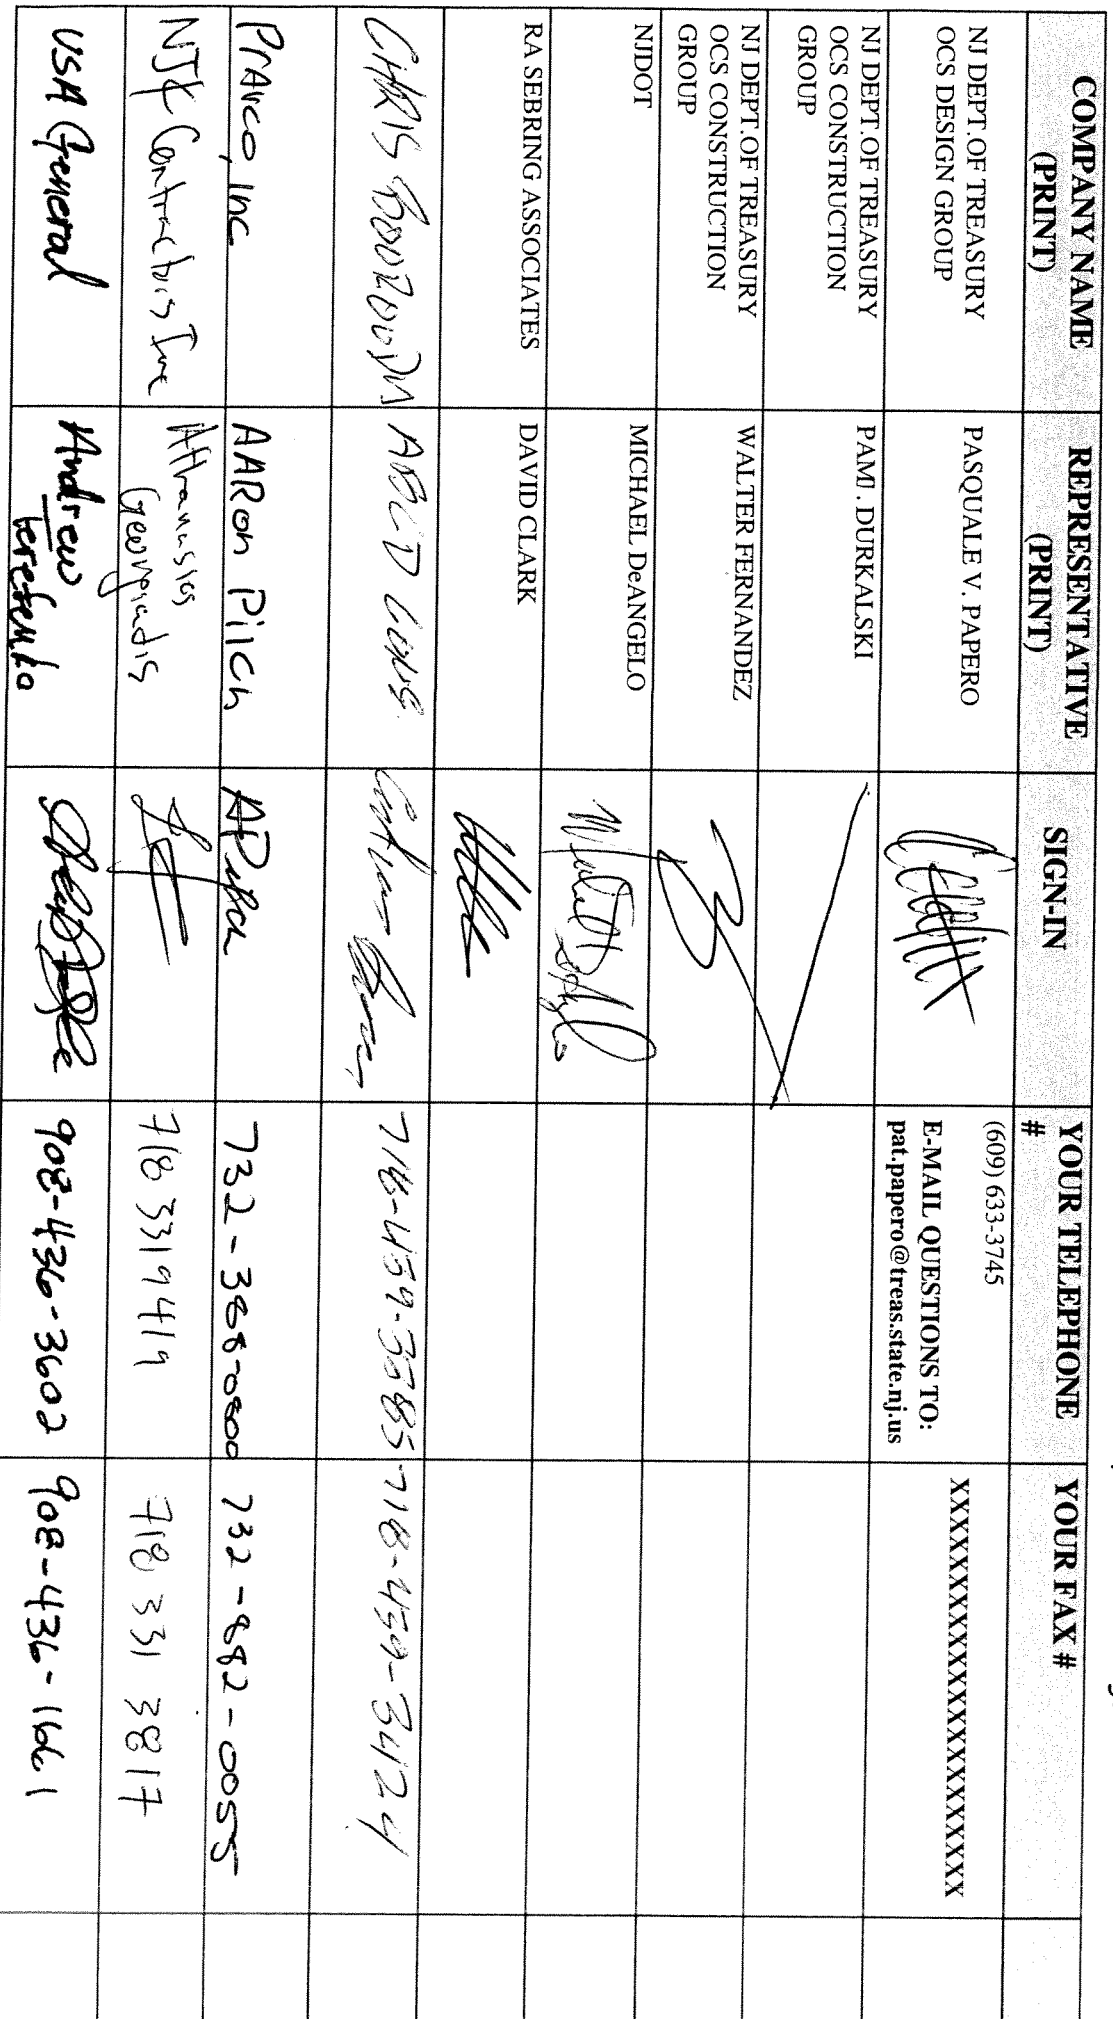 COMPANY NAME
(PRINT)
REPRESENTATIVE
(PRINT)
SIGN-IN
YOUR TELEPHONE
#
YOUR FAX #
NJ DEPT.OF TREASURY
OCS DESIGN GROUP
PASQUALE V. PAPERO
(609) 633-3745
E-MAIL QUESTIONS TO:
pat.papero@treas.state.nj.us
XXXXXXXXXXXXXXXXXXXXXXX
NJ DEPT.OF TREASURY
OCS CONSTRUCTION
GROUP
PAM . DURKALSKI
NJ DEPT.OF TREASURY
OCS CONSTRUCTION
GROUP
WALTER FERNANDEZ
NJDOT
MICHAEL DeANGELO
RA SEBRING ASSOCIATES
DAVID CLARK
CHRIS
ABCD CONS.
718-459-3385
718-459-3424
PrArco, Inc
AARon Pilch
APilch
732-388-0800
732-882-0055
Contractors Inc
Athanasios
Georgiadis
718 331 9419
718 331 3817
USA General
Andrew
908-436-3602
908-436-1661